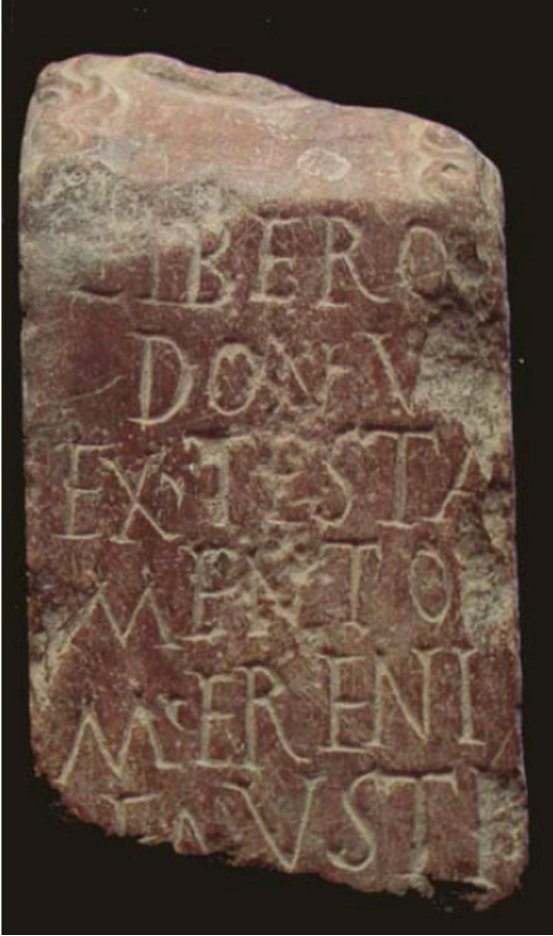 LIBERO
DON·V
EX·TESTA
MENTO
M·ERENI
FAVSTI